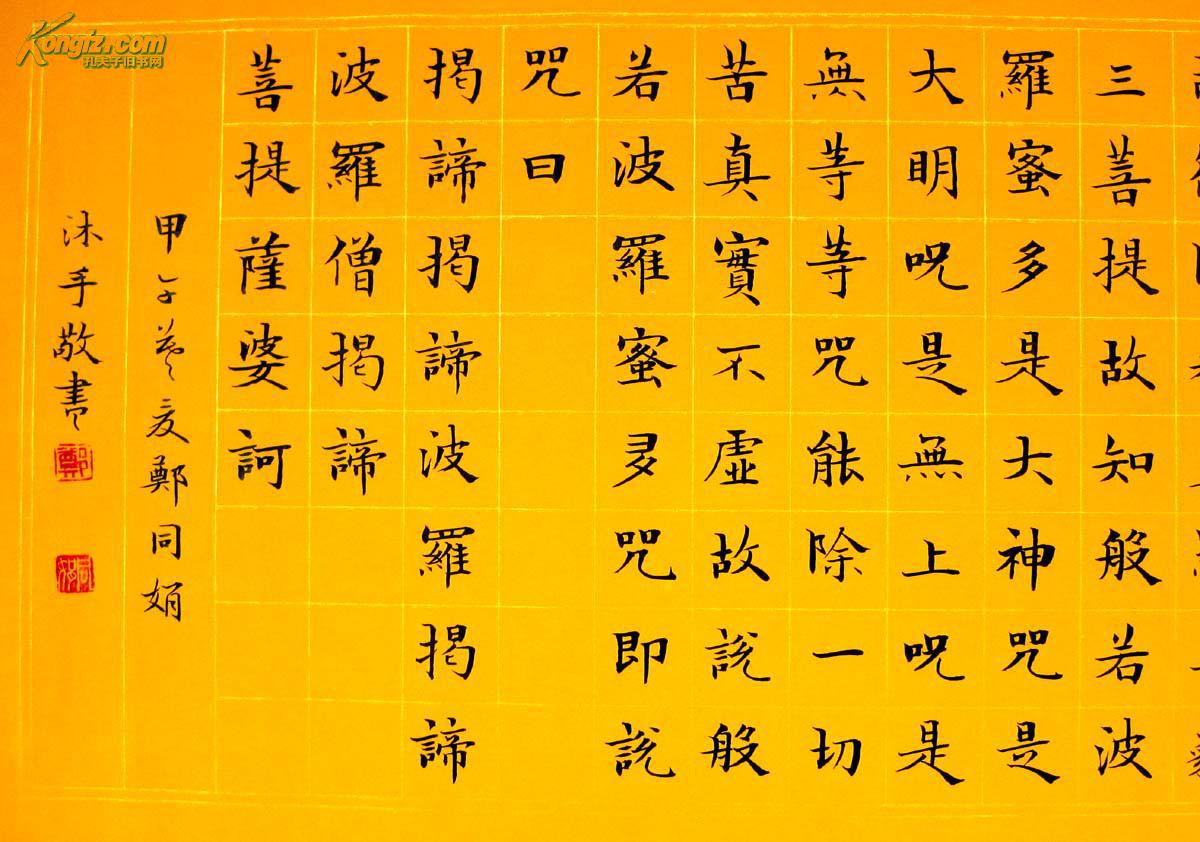 三菩提故知般若波
羅蜜多是大神咒是
大明呪是無上呪是
無等等咒能除一切
苦真實不虛故說般
若波羅蜜多咒即說
咒曰
揭諦揭諦波羅揭諦
波羅僧揭諦
菩提薩婆訶
甲午孟夏鄭同娟
沐手敬書
鄭
Kongfz.com
孔夫子旧书网